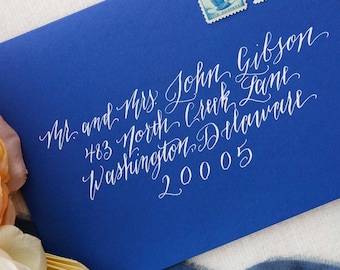 Mr. and Mrs. John Gibson
483 North Creek Lane
Washington, Delaware
20005